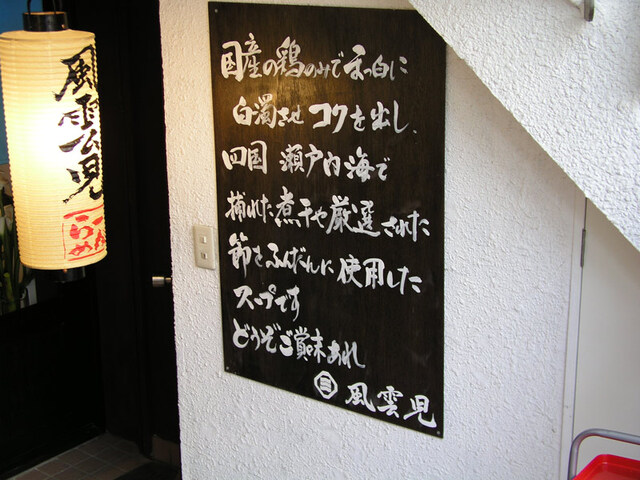 風雲児
らぁめん
国産の鶏のみで真っ白に
白濁させ コクを出し、
四国 瀬戸内海で
捕れた煮干や厳選された
節をふんだんに使用した
スープです
どうぞご賞味あれ
風雲児